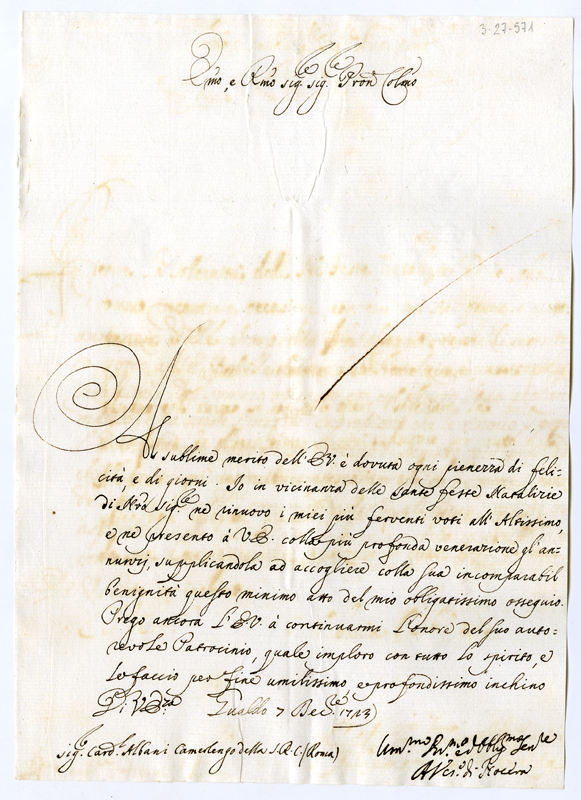 3-27-571
Emo, e Rmo sig.re sig.re Pron Colmo
Al sublime merito dell'EV. è dovuta ogni pienezza di feli-
cità, e di giorni. Io in vicinanza delle sante feste Natalizie
di Nro Sig.re ne rinuovo i miei più ferventi voti all'Altissimo,
e ne presento à V.E. colla più profonda venerazione gl'an-
nunzij, supplicandola ad accogliere colla sua incomparabil
benignità questo minimo atto del mio obligatissimo ossequio.
Prego ancora L'EV. à continuarmi l'onore del suo auto-
revole Patrocinio, quale imploro con tutto lo spirito, e
le faccio per fine umilissimo e profondissimo inchino
Di V. Gualdo 7 Dec.re 1743
Sig.r Card.l Albani Camerlengo della S.R.C. (Roma)
Um.mo ed Obb.mo
A Ves.o di Nocera